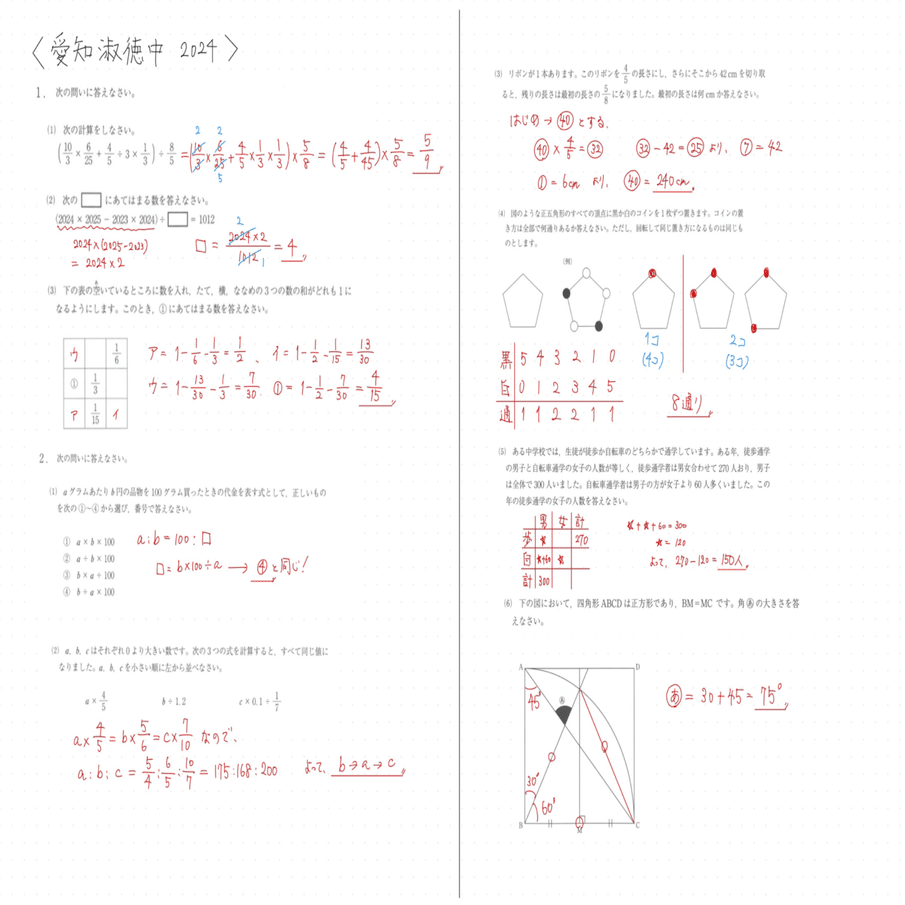 〈愛知淑徳中 2024〉
1. 次の問いに答えなさい。
(1) 次の計算をしなさい。
(10/3 × 6/25 + 4/5 ÷ 3 × 1/3) ÷ 8/5 = (10/3 × 6/25 + 4/5 × 1/3 × 1/3) × 5/8 = (4/5 + 4/45) × 5/8 = 5/9
2 2
5
(2) 次の□にあてはまる数を答えなさい。
(2024 × 2025 − 2023 × 2024) ÷ □ = 1012
2024×(2025−2023)
= 2024×2
□ = 2024×2/1012 = 4
2
1
(3) 下の表の空いているところに数を入れ,たて,横,ななめの3つの数の和がどれも1に
なるようにします。このとき,①にあてはまる数を答えなさい。
ウ 1/6
① 1/3
ア 1/15 イ
ア = 1−1/6−1/3 = 1/2 、 イ = 1−1/2−1/15 = 13/30
ウ = 1−13/30−1/3 = 7/30. ① = 1−1/2−7/30 = 4/15
2. 次の問いに答えなさい。
(1) aグラムあたりb円の品物を100グラム買ったときの代金を表す式として,正しいもの
を次の①~④から選び,番号で答えなさい。
① a × b × 100
② a ÷ b × 100
③ b × a ÷ 100
④ b ÷ a × 100
a:b = 100:□
□ = b×100÷a → ④と同じ!
(2) a,b,cはそれぞれ0より大きい数です。次の3つの式を計算すると,すべて同じ値に
なりました。a,b,cを小さい順に左から並べなさい。
a × 4/5 b ÷ 1.2 c × 0.1 ÷ 1/7
a×4/5 = b×5/6 = c×7/10 なので、
a:b:c = 5/4:6/5:10/7 = 175:168:200 よって、 b→a→c
(3) リボンが1本あります。このリボンを4/5の長さにし,さらにそこから42cmを切り取
ると,残りの長さは最初の長さの5/8になりました。最初の長さは何cmか答えなさい。
はじめ→㊵とする.
㊵×4/5=㉜ ㉜−42=㉕より、⑦=42
①=6cm より、 ㊵=240cm
(4) 図のような正五角形のすべての頂点に黒か白のコインを1枚ずつ置きます。コインの置
き方は全部で何通りあるか答えなさい。ただし,回転して同じ置き方になるものは同じも
のとします。
(例)
1コ
(4コ)
2コ
(3コ)
黒 5 4 3 2 1 0
白 0 1 2 3 4 5
通 1 1 2 2 1 1
8通り
(5) ある中学校では,生徒が徒歩か自転車のどちらかで通学しています。ある年,徒歩通学
の男子と自転車通学の女子の人数が等しく,徒歩通学者は男女合わせて270人おり,男子
は全体で300人いました。自転車通学者は男子の方が女子より60人多くいました。この
年の徒歩通学の女子の人数を答えなさい。
男 女 計
歩 ★ 270
自 ★+60 ★
計 300
★+★+60=300
★=120
よって、270−120=150人
(6) 下の図において,四角形ABCDは正方形であり,BM=MCです。角あの大きさを答
えなさい。
A D
45°
あ
30°
60°
B M C
あ = 30+45 = 75°